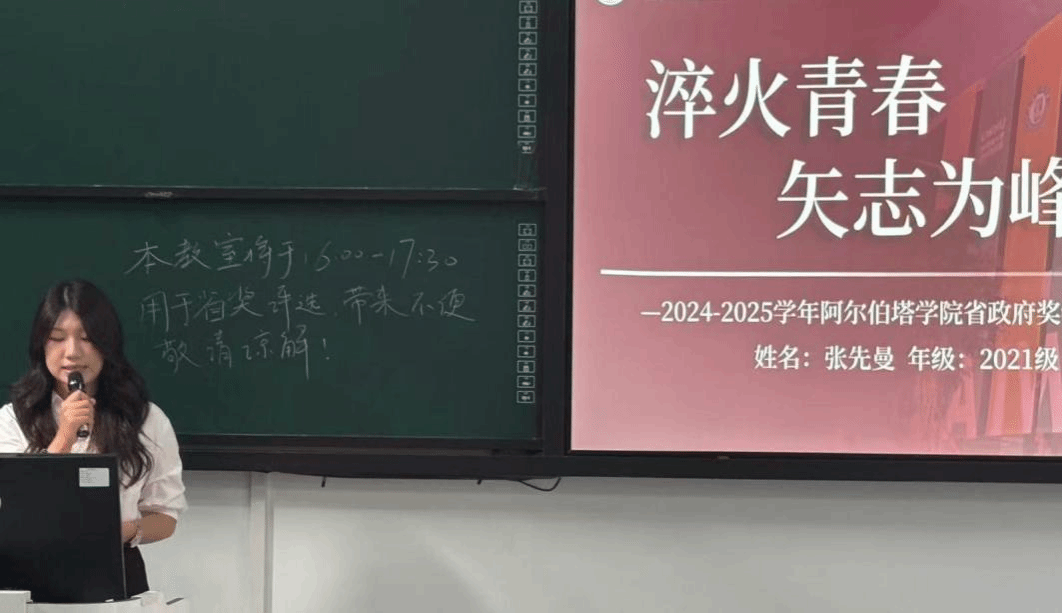 本教室将于16:00-17:30
用于省奖评选.带来不便
敬请谅解!
淬火青春
矢志为峰
—2024-2025学年阿尔伯塔学院省政府奖
姓名：张先曼 年级：2021级